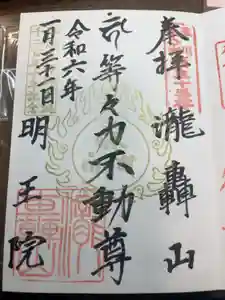 奉拝 瀧轟山
等々力不動尊
令和六年
一月三十日
明王院